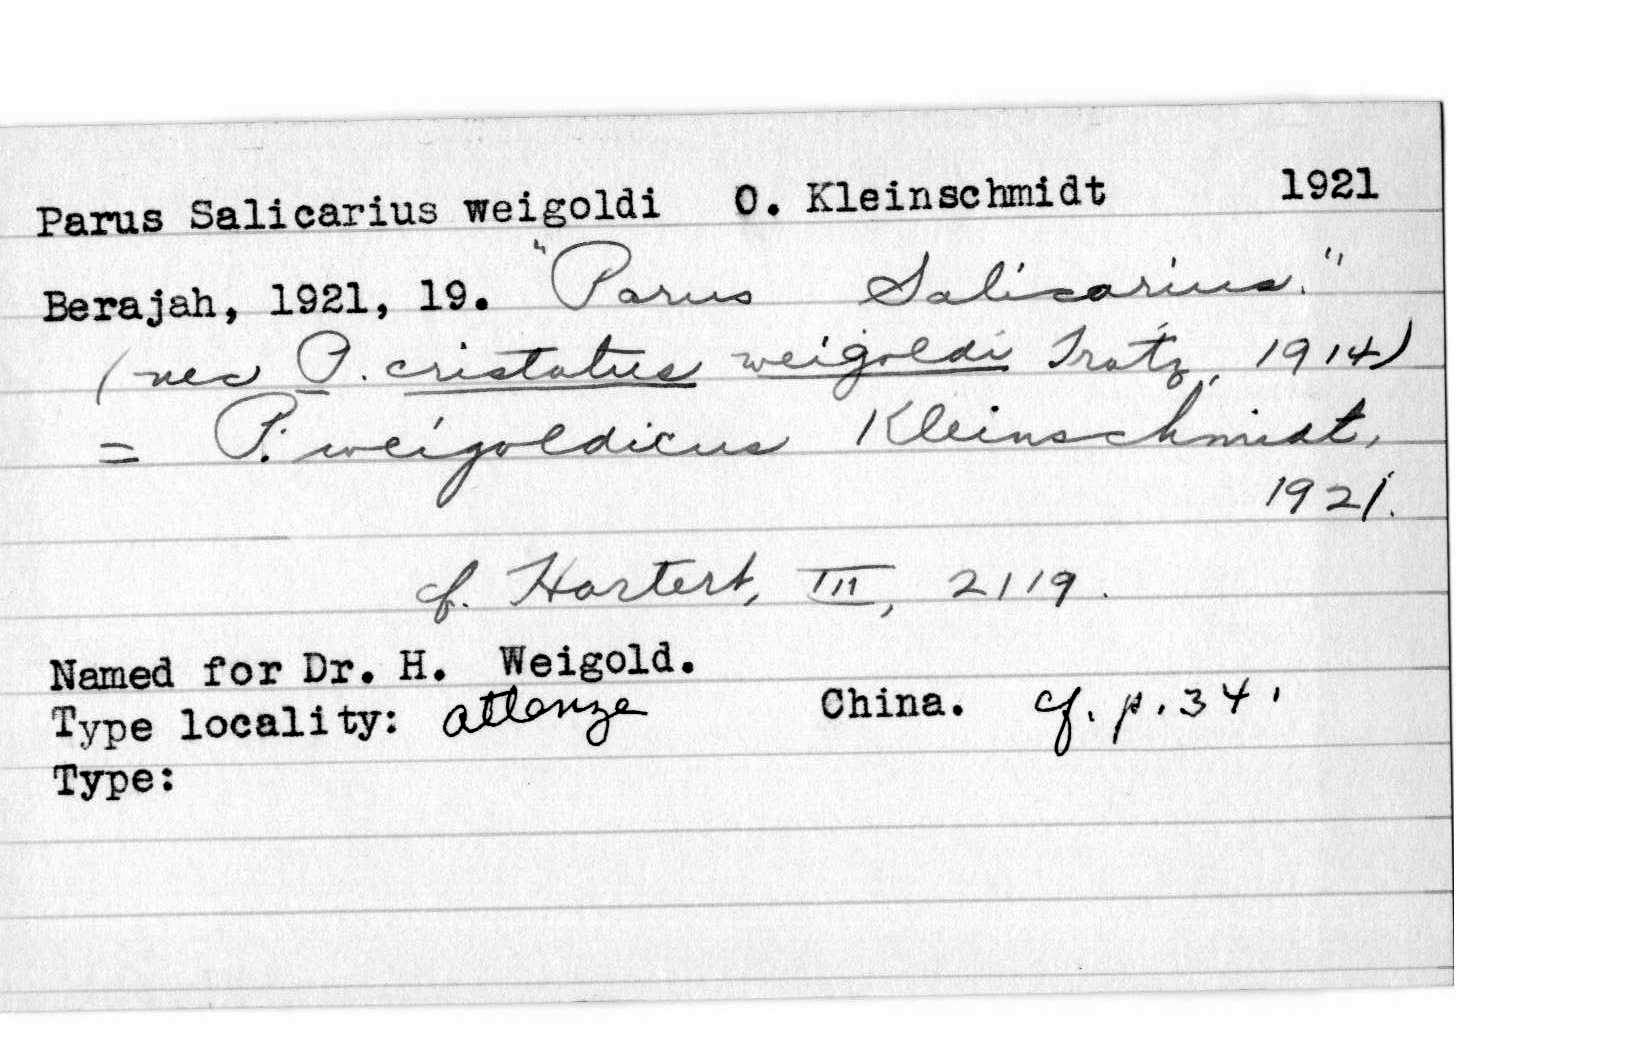 Parus Salicarius weigoldi O. Kleinschmidt 1921
Berajah, 1921, 19. "Parus Salicarius."
(nec P. cristatus weigoldi Tratz, 1914)
= P. weigoldicus Kleinschmidt,
1921.
cf. Hartert, III, 2119.
Named for Dr. H. Weigold.
Type locality: China. cf. p. 34.
Type: